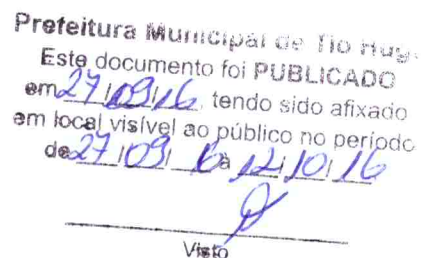 Prefeitura Municipal de Tio Hug
Este documento foi PUBLICADO
em 27/09/16, tendo sido afixado
em local visível ao público no período
de 27/09/ 16 a 12/10/16
Visto